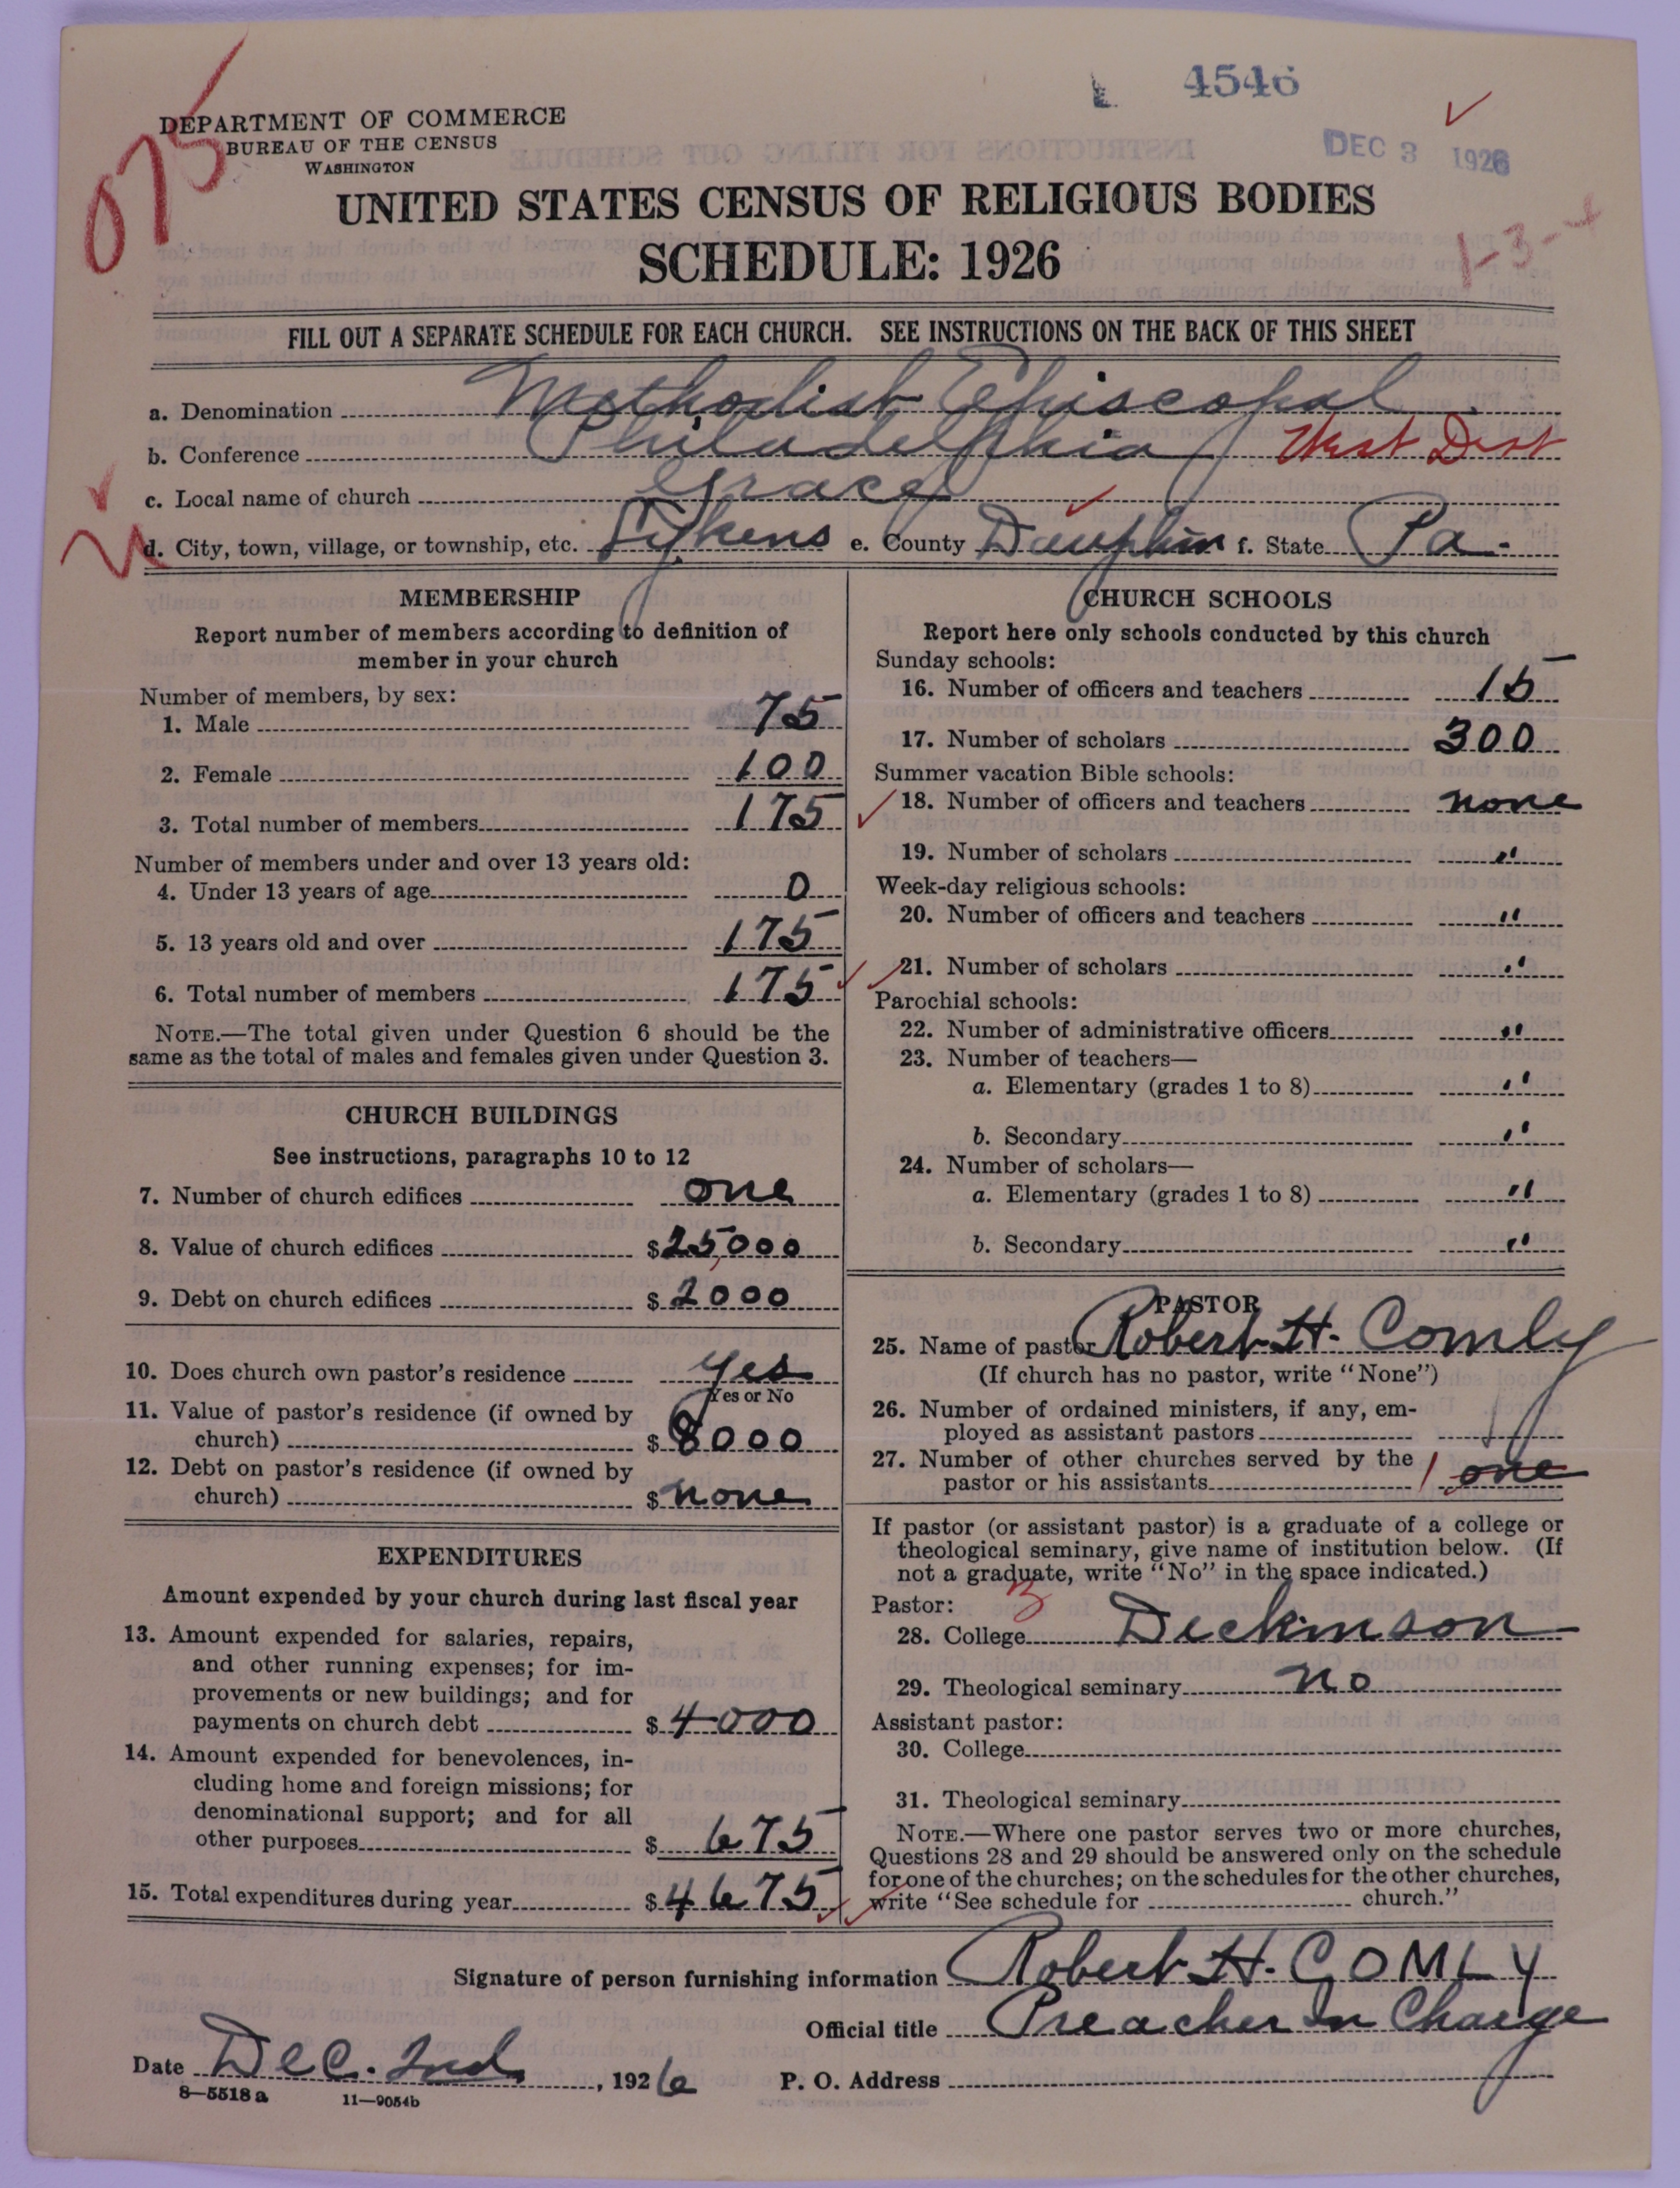 4546
DEC 3 1926
075
DEPARTMENT OF COMMERCE
BUREAU OF THE CENSUS
WASHINGTON
UNITED STATES CENSUS OF RELIGIOUS BODIES
SCHEDULE: 1926
1-3-4
FILL OUT A SEPARATE SCHEDULE FOR EACH CHURCH. SEE INSTRUCTIONS ON THE BACK OF THIS SHEET
a. Denomination Methodist Episcopal
b. Conference Philadelphia West Dist
c. Local name of church Grace
d. City, town, village, or township, etc. Lykens e. County Dauphin f. State Pa.
MEMBERSHIP
Report number of members according to definition of
member in your church
Number of members, by sex:
1. Male 75
2. Female 100
3. Total number of members 175
Number of members under and over 13 years old:
4. Under 13 years of age 0
5. 13 years old and over 175
6. Total number of members 175
NOTE.—The total given under Question 6 should be the
same as the total of males and females given under Question 3.
CHURCH BUILDINGS
See instructions, paragraphs 10 to 12
7. Number of church edifices one
8. Value of church edifices $25,000
9. Debt on church edifices $2000
10. Does church own pastor's residence yes
Yes or No
11. Value of pastor's residence (if owned by
church) $8000
12. Debt on pastor's residence (if owned by
church) $none
EXPENDITURES
Amount expended by your church during last fiscal year
13. Amount expended for salaries, repairs,
and other running expenses; for im-
provements or new buildings; and for
payments on church debt $4000
14. Amount expended for benevolences, in-
cluding home and foreign missions; for
denominational support; and for all
other purposes $675
15. Total expenditures during year $4675
CHURCH SCHOOLS
Report here only schools conducted by this church
Sunday schools:
16. Number of officers and teachers 15
17. Number of scholars 300
Summer vacation Bible schools:
18. Number of officers and teachers none
19. Number of scholars "
Week-day religious schools:
20. Number of officers and teachers "
21. Number of scholars "
Parochial schools:
22. Number of administrative officers "
23. Number of teachers—
a. Elementary (grades 1 to 8) "
b. Secondary "
24. Number of scholars—
a. Elementary (grades 1 to 8) "
b. Secondary "
PASTOR
25. Name of pastor Robert H. Comly
(If church has no pastor, write "None")
26. Number of ordained ministers, if any, em-
ployed as assistant pastors
27. Number of other churches served by the
pastor or his assistants 1 one
If pastor (or assistant pastor) is a graduate of a college or
theological seminary, give name of institution below. (If
not a graduate, write "No" in the space indicated.)
Pastor:
28. College Dickinson
29. Theological seminary no
Assistant pastor:
30. College
31. Theological seminary
NOTE.—Where one pastor serves two or more churches,
Questions 28 and 29 should be answered only on the schedule
for one of the churches; on the schedules for the other churches,
write "See schedule for church."
Signature of person furnishing information Robert H. COMLY
Official title Preacher In Charge
Date Dec. 2nd, 1926 P. O. Address
8—5518a 11—9054b